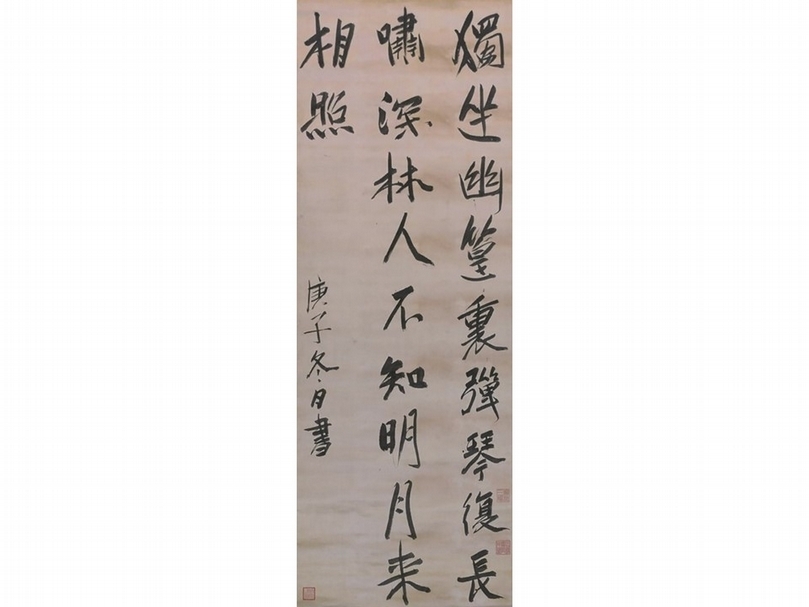 獨坐幽篁裏彈琴復長
嘯深林人不知明月来
相照
庚子冬日書